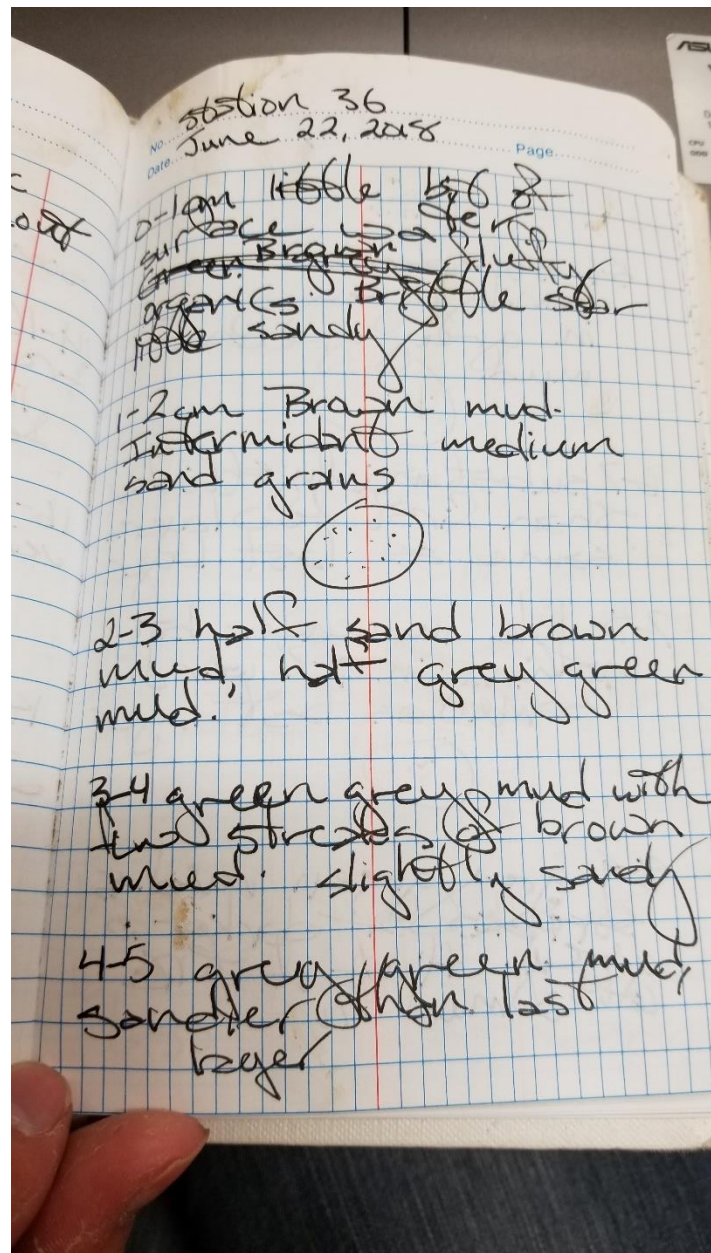 Station 36
No.
June 22, 2018
Date
Page
0-1cm little bit of
surface water
Green Brown fluffy
organics. Brittle star
little sandy
1-2cm Brown mud.
Intermidant medium
sand grains
2-3 half sand brown
mud, half grey green
mud.
3-4 green grey mud with
two streaks of brown
mud. slightly sandy
4-5 grey green mud,
sandier than last
layer
out
ASU